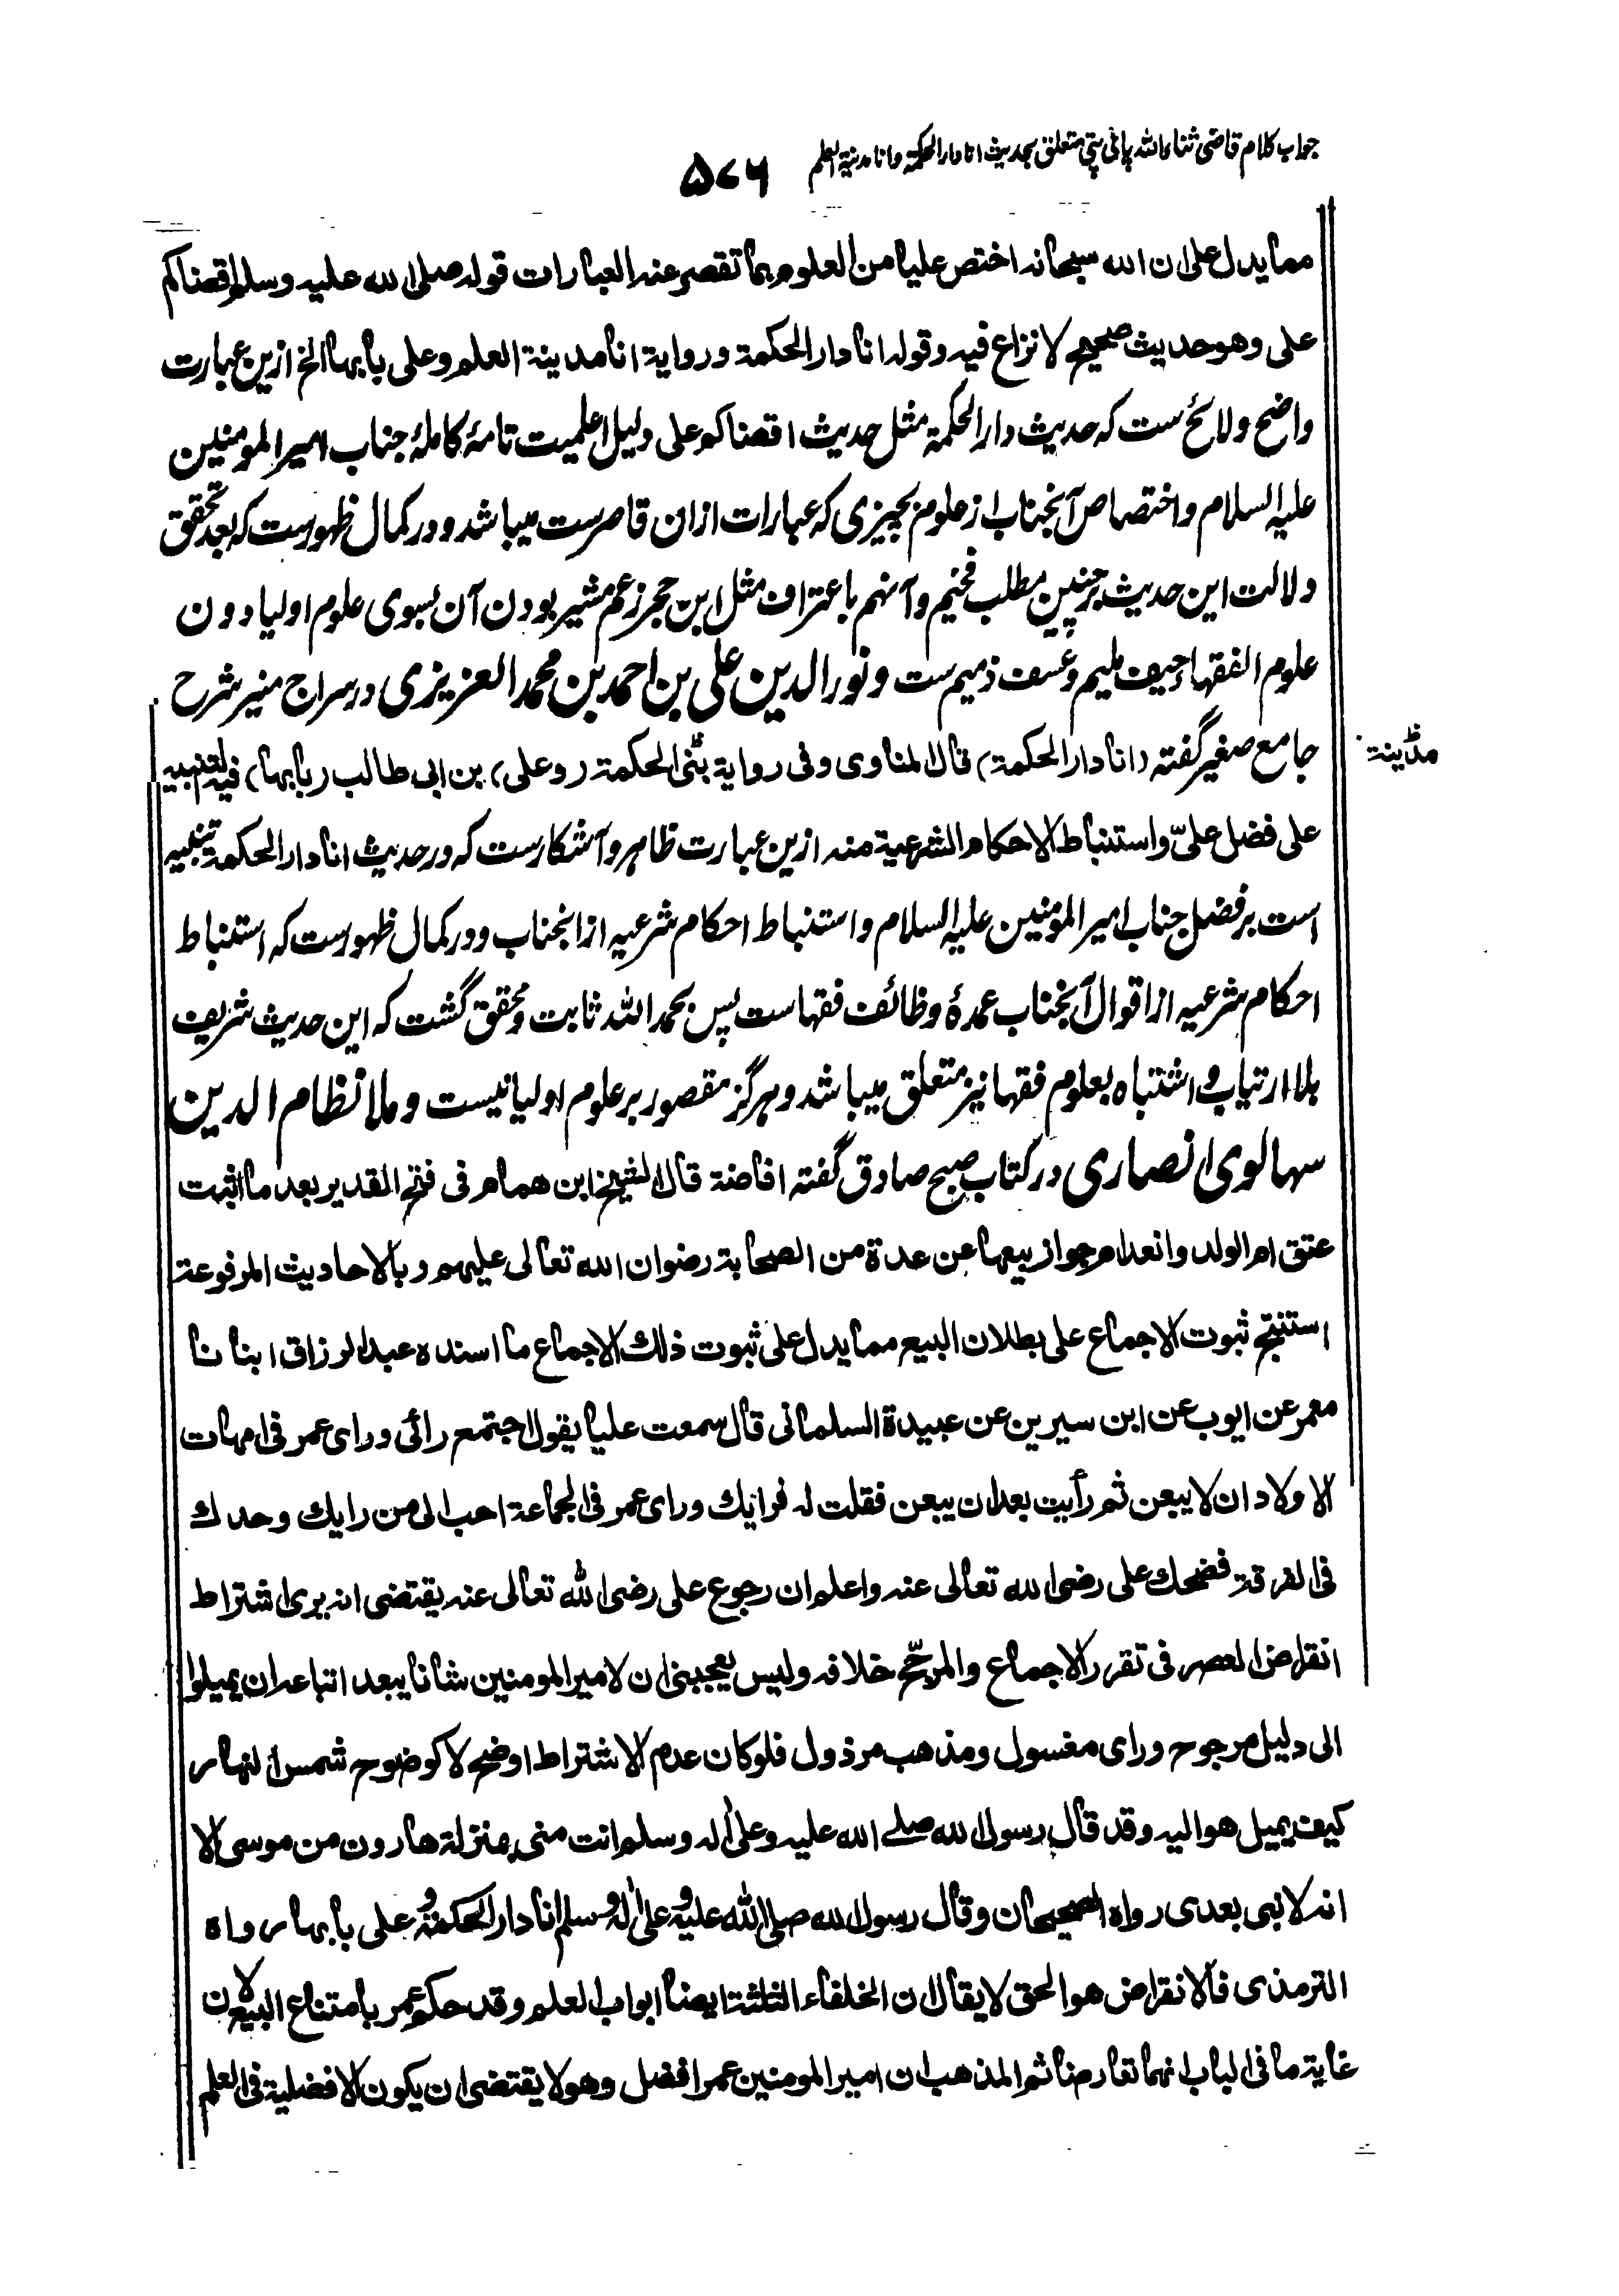 جواب کلام قاضی ثناء الله پانی پتی متعلق بحدیث انا دار الحکمة وانا مدینة العلم
۵۷۶
مما يدل على ان الله سبحانه اختص عليا من العلوم بما تقصر عنه العبارات قوله صلى الله عليه وسلم اقضاكم
على وهو حديث صحيح لا نزاع فيه وقوله انا دار الحكمة ورواية انا مدينة العلم وعلى بابها الخ ازین عبارت
واضح ولائح ست که حدیث دار الحکمة مثل حدیث اقضاکم علی دلیل اعلمیت تامهٔ کاملهٔ جناب امیر المومنین
علیه السلام واختصاص آنجناب از علوم بچیزی که عبارات ازان قاصرست میباشد ودر کمال ظهورست که بعد تحقق
دلالت این حدیث بر چنین مطلب فخیم وآنهم باعتراف مثل ابن حجر زعم مشیر بودن آن بسوی علوم اولیا دون
علوم الفقها حیف ملیم وعسف ذمیم ست ونور الدین علی بن احمد بن محمد العزیزی در سراج منیر شرح
جامع صغیر گفته (انا دار الحكمة) قال المناوى وفى رواية نبى الحكمة (وعلى) بن ابى طالب (بابها) فيه التنبيه
مدينة
على فضل علىّ واستنباط الاحكام الشرعية منه ازین عبارت ظاهر وآشکارست که در حدیث انا دار الحکمة تنبیه
است بر فضل جناب امیر المؤمنین علیه السلام واستنباط احکام شرعیه ازانجناب ودر کمال ظهورست که استنباط
احکام شرعیه از اقوال آنجناب عمدهٔ وظائف فقهاست پس بحمد الله ثابت ومحقق گشت که این حدیث شریف
بلا ارتیاب و اشتباه بعلوم فقها نیز متعلق میباشد وهرگز مقصور بر علوم اولیا نیست وملا نظام الدین
سهالوی انصاری در کتاب صبح صادق گفته افاضة قال الشيخ ابن همام فى فتح القدير بعد ما اثبت
عتق ام الولد وانعدام جواز بيعها عن عدة من الصحابة رضوان الله تعالى عليهم وبالاحاديث المرفوعة
استنتج ثبوت الاجماع على بطلان البيع مما يدل على ثبوت ذلك الاجماع ما اسنده عبد الرزاق ابنانا
معمر عن ايوب عن ابن سيرين عن عبيدة السلمانى قال سمعت عليا يقول اجتمع رائى وراى عمر فى امهات
الاولاد ان لا يبعن ثم رأيت بعد ان يبعن فقلت له فرايك وراى عمر فى الجماعة احب الى من رايك وحدك
فى الفرقة فضحك على رضى الله تعالى عنه واعلم ان رجوع على رضى الله تعالى عنه يقتضى انه يرى اشتراط
انقراض العصر فى تقرر الاجماع والمرجّح خلافه وليس يعجبنى ان لامير المومنين شانا يبعد اتباعه ان يميلوا
الى دليل مرجوح وراى مغسول ومذهب مرذول فلو كان عدم الاشتراط اوضح لا كوضوح شمس النهار
كيف يميل هو اليه وقد قال رسول الله صلے الله عليه وعلى اله وسلم انت منى بمنزلة هارون من موسى الا
انه لا نبى بعدى رواه الصحيحان وقال رسول الله صلى الله عليه وعلى اله وسلم انا دار الحكمة وعلى بابها رواه
الترمذى فالانقراض هو الحق لا يقال ان الخلفاء الثلثة ايضا ابواب العلم وقد حكم عمر بامتناع البيع لان
غاية ما فى الباب انهما تعارضا ثم المذهب ان امير المومنين عمر افضل وهو لا يقتضى ان يكون الافضلية فى العلم